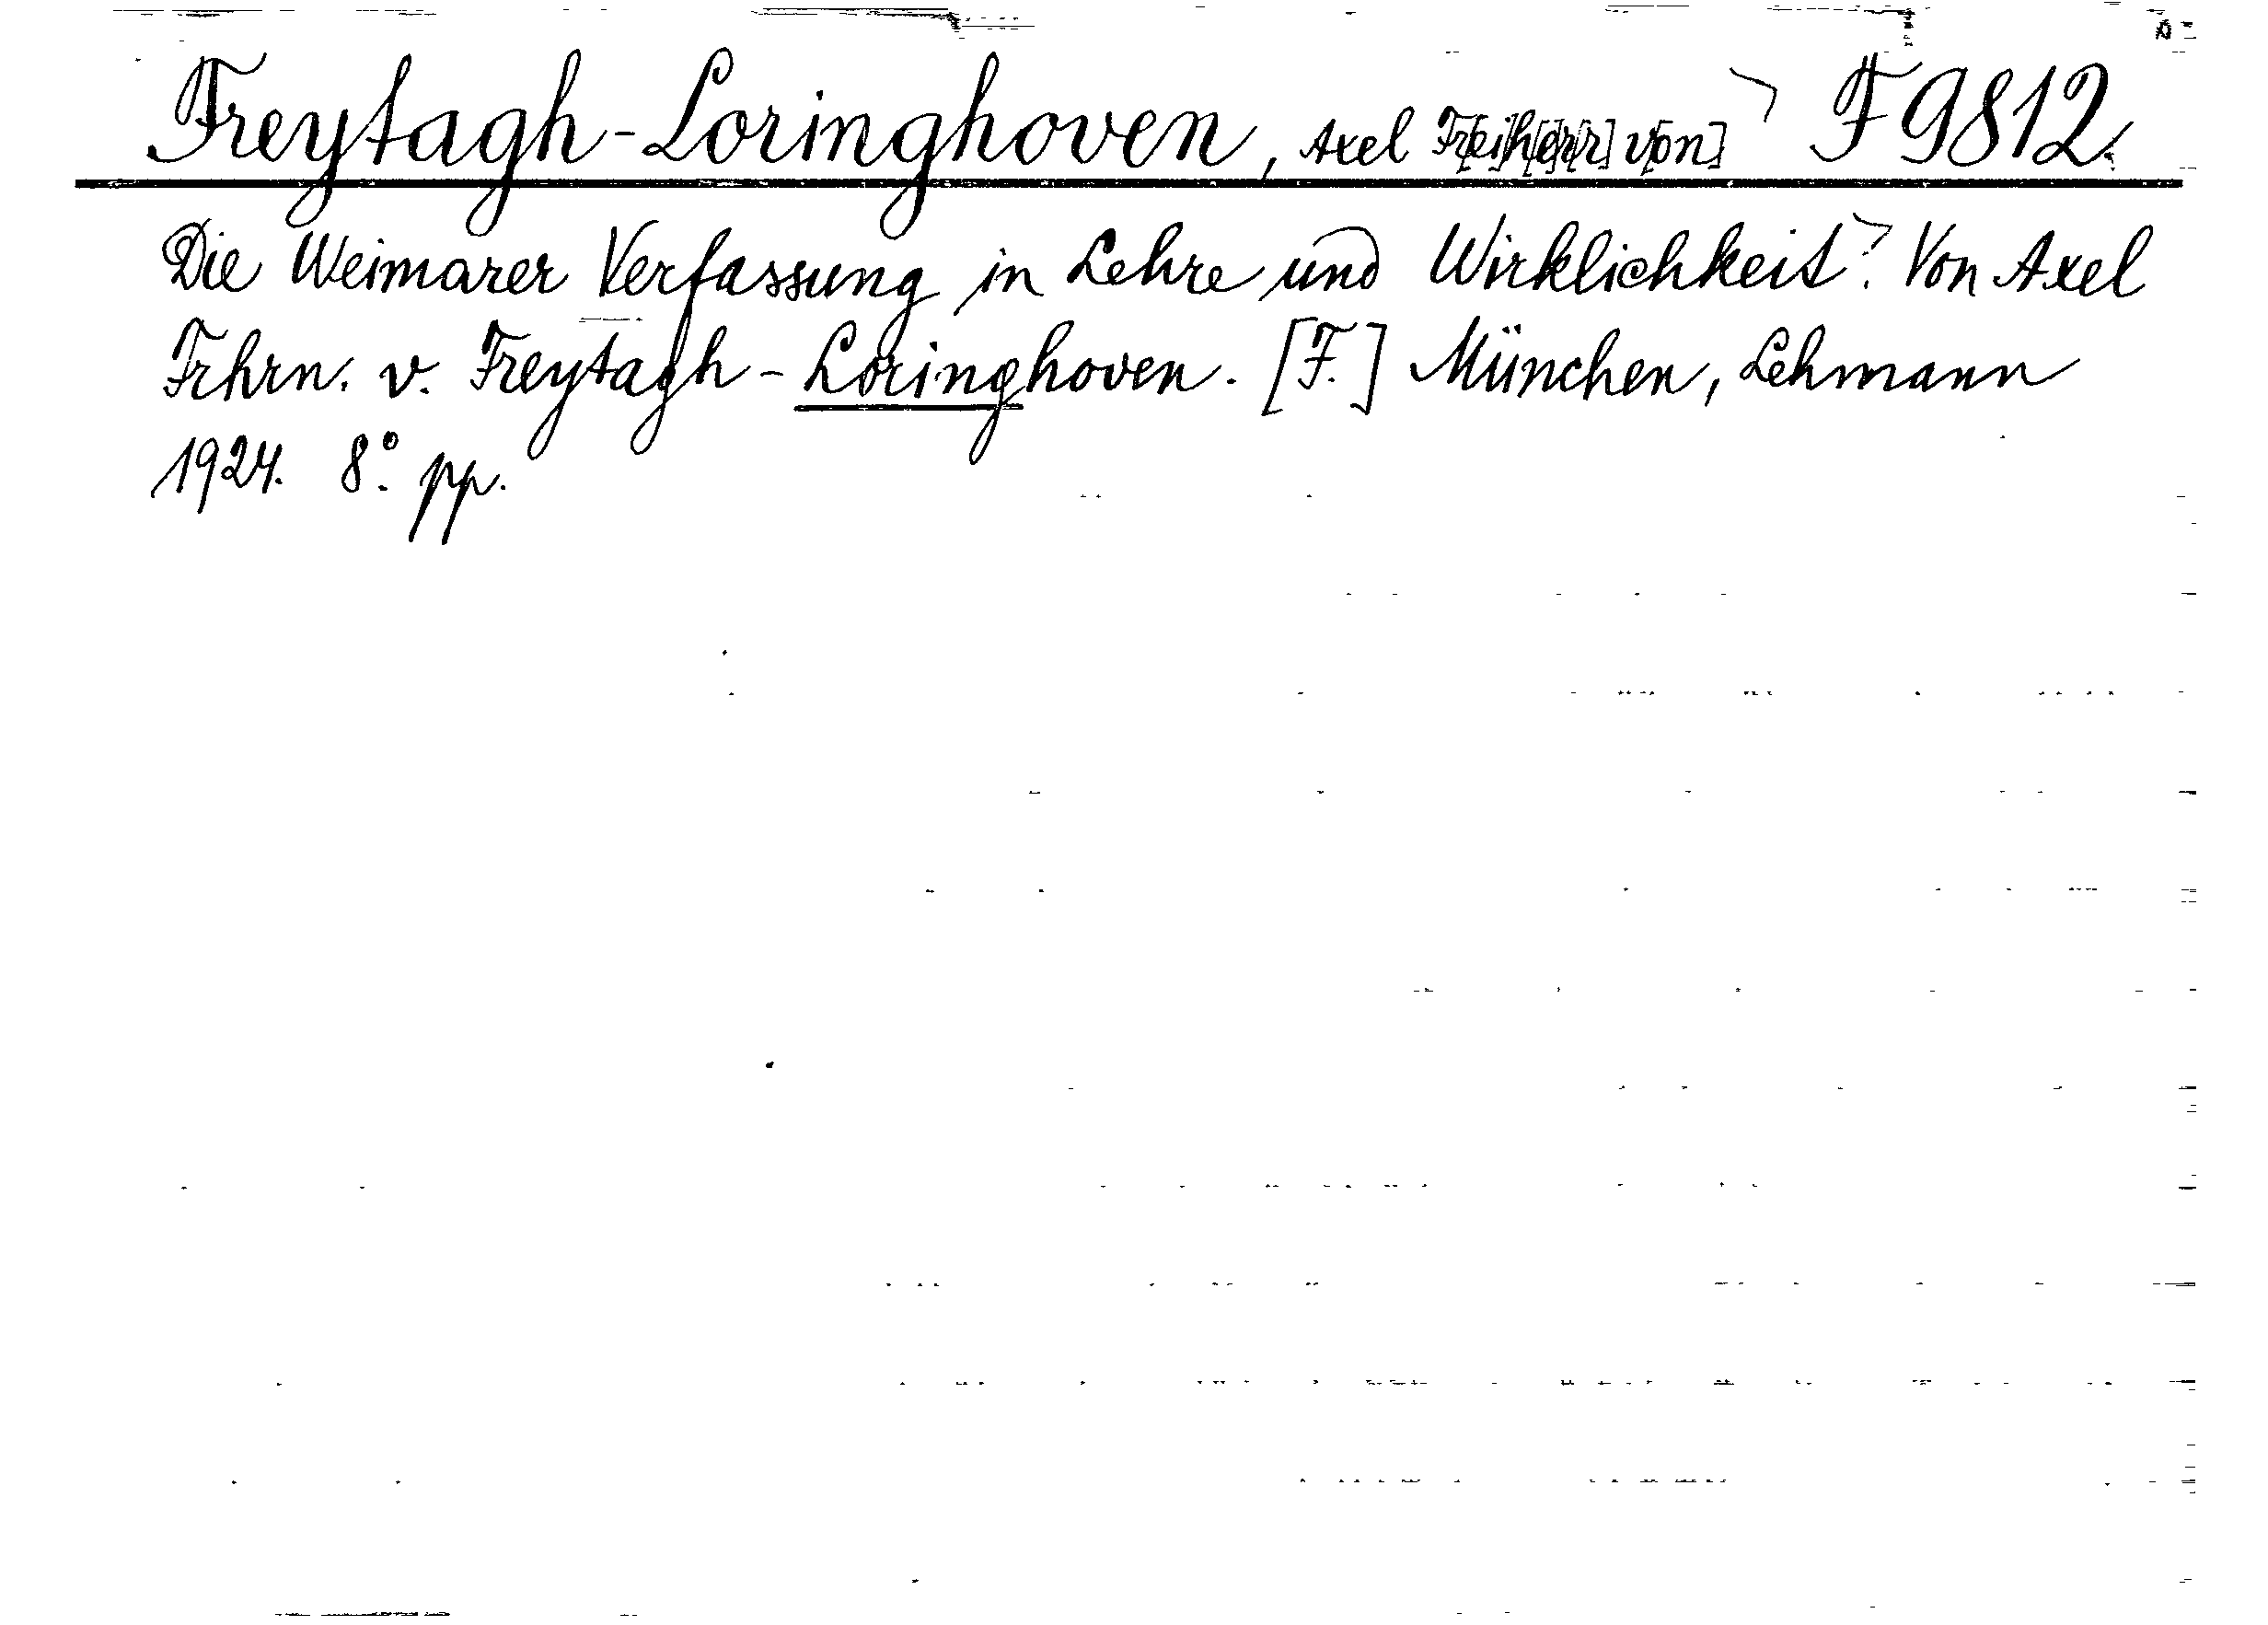 Freytagh-Loringhoven, Axel Fr[ei]h[er]r v[on] F 9812.
Die Weimarer Verfassung in Lehre und Wirklichkeit. Von Axel
Frhrn. v. Freytagh-Loringhoven. [F.] München, Lehmann
1924. 8°. pp.